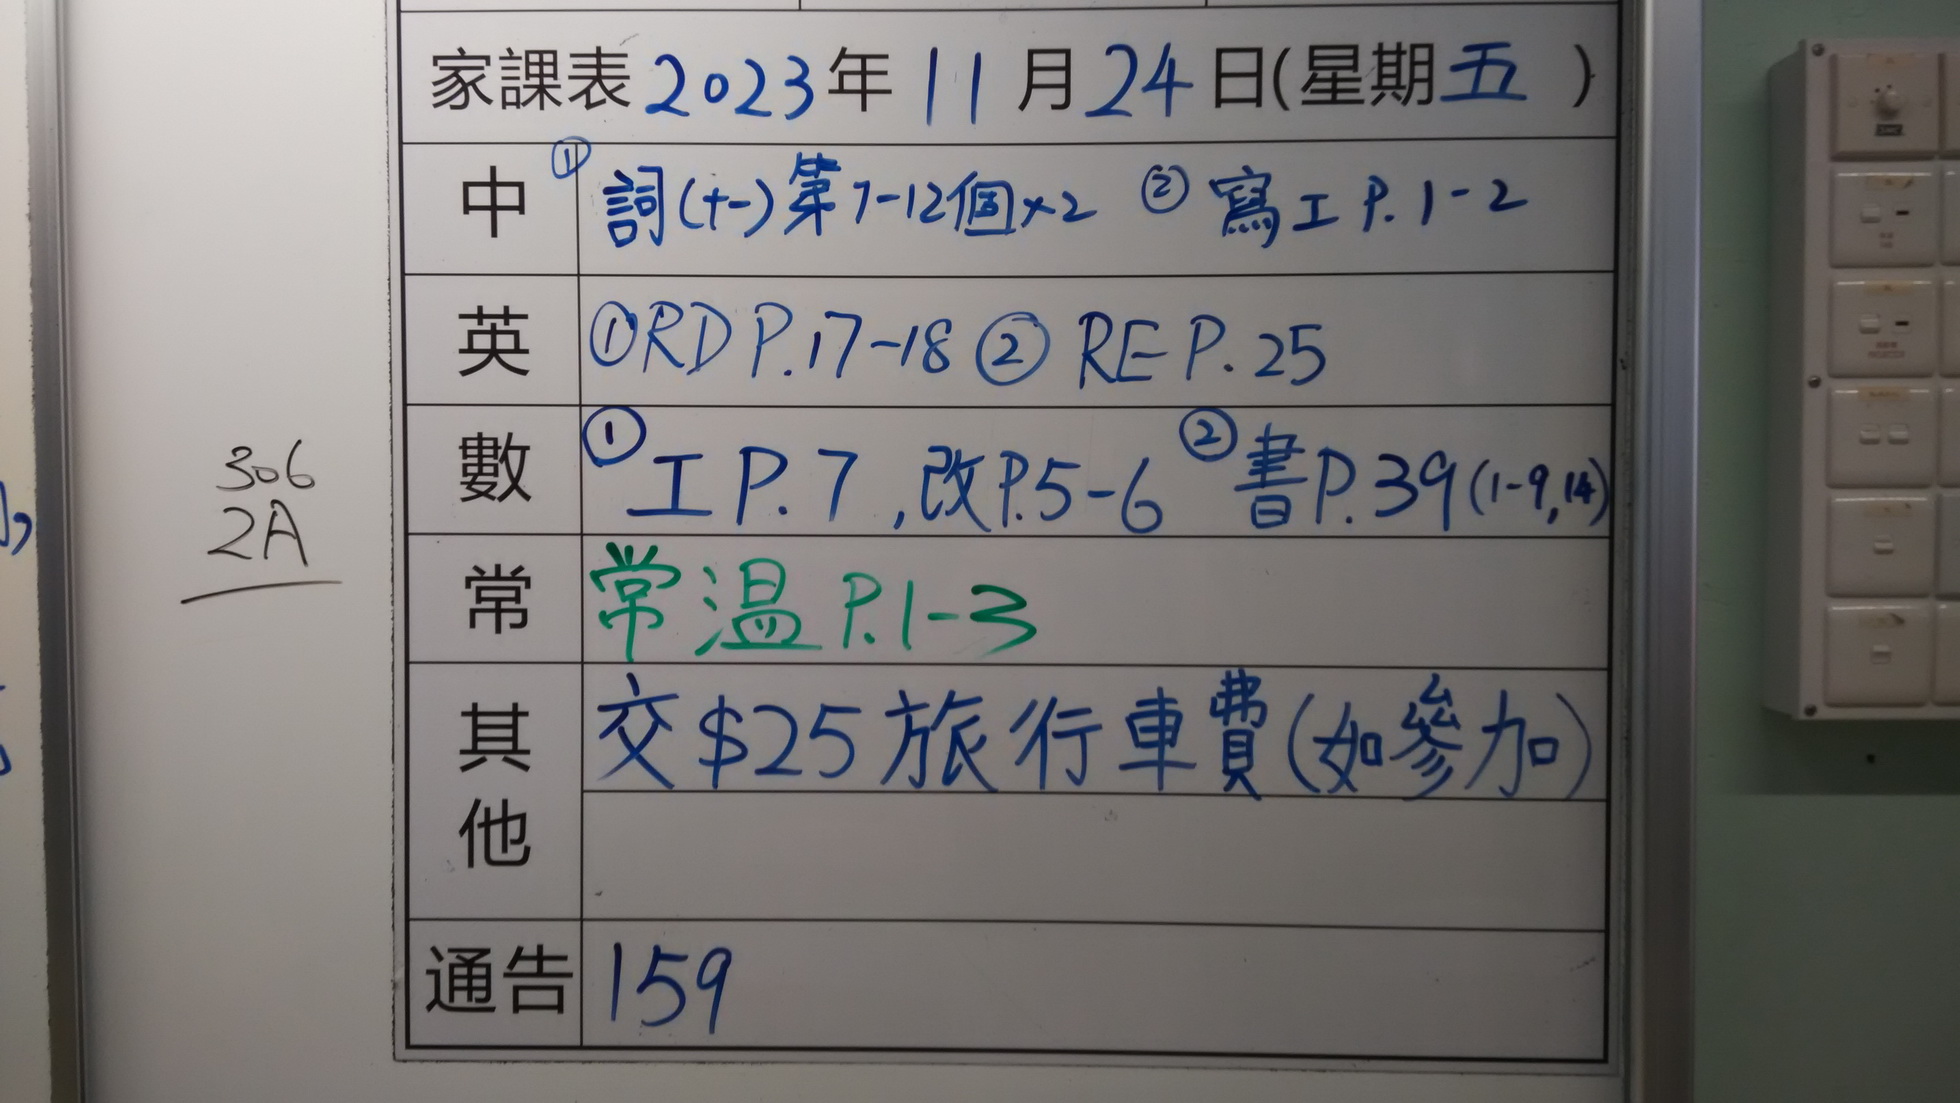 家課表 2023年 11月 24日(星期五)
中 ① 詞(十一)第7-12個×2 ② 寫工P.1-2
英 ①RD P.17-18 ② RE P.25
數 ① 工P.7,改P.5-6 ② 書P.39(1-9,14)
常 常溫P.1-3
其他 交$25旅行車費(如參加)
通告 159
306
2A